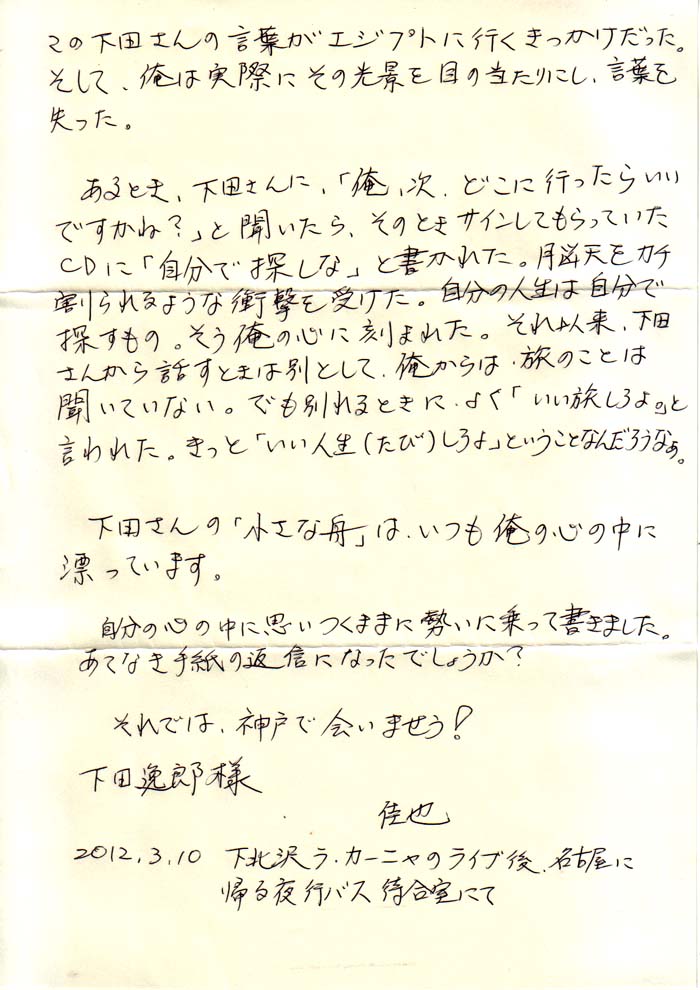 この下田さんの言葉がエジプトに行くきっかけだった。
そして、俺は実際にその光景を目の当たりにし、言葉を
失った。
あるとき、下田さんに、「俺、次、どこに行ったらいい
ですかね？」と聞いたら、そのときサインしてもらっていた
CDに「自分で探しな」と書かれた。脳天をカチ
割られるような衝撃を受けた。自分の人生は自分で
探すもの。そう俺の心に刻まれた。それ以来、下田
さんから話すときは別として、俺からは、旅のことは
聞いていない。でも別れるときに、よく「いい旅しろよ。」と
言われた。きっと「いい人生(たび)しろよ」ということなんだろうなぁ。
下田さんの「小さな舟」は、いつも俺の心の中に
漂っています。
自分の心の中に思いつくままに勢いに乗って書きました。
あてなき手紙の返信になったでしょうか？
それでは、神戸で会いませう！
下田逸郎様
佳也
2012.3.10 下北沢ラ・カーニャのライブ後、名古屋に
帰る夜行バス待合室にて